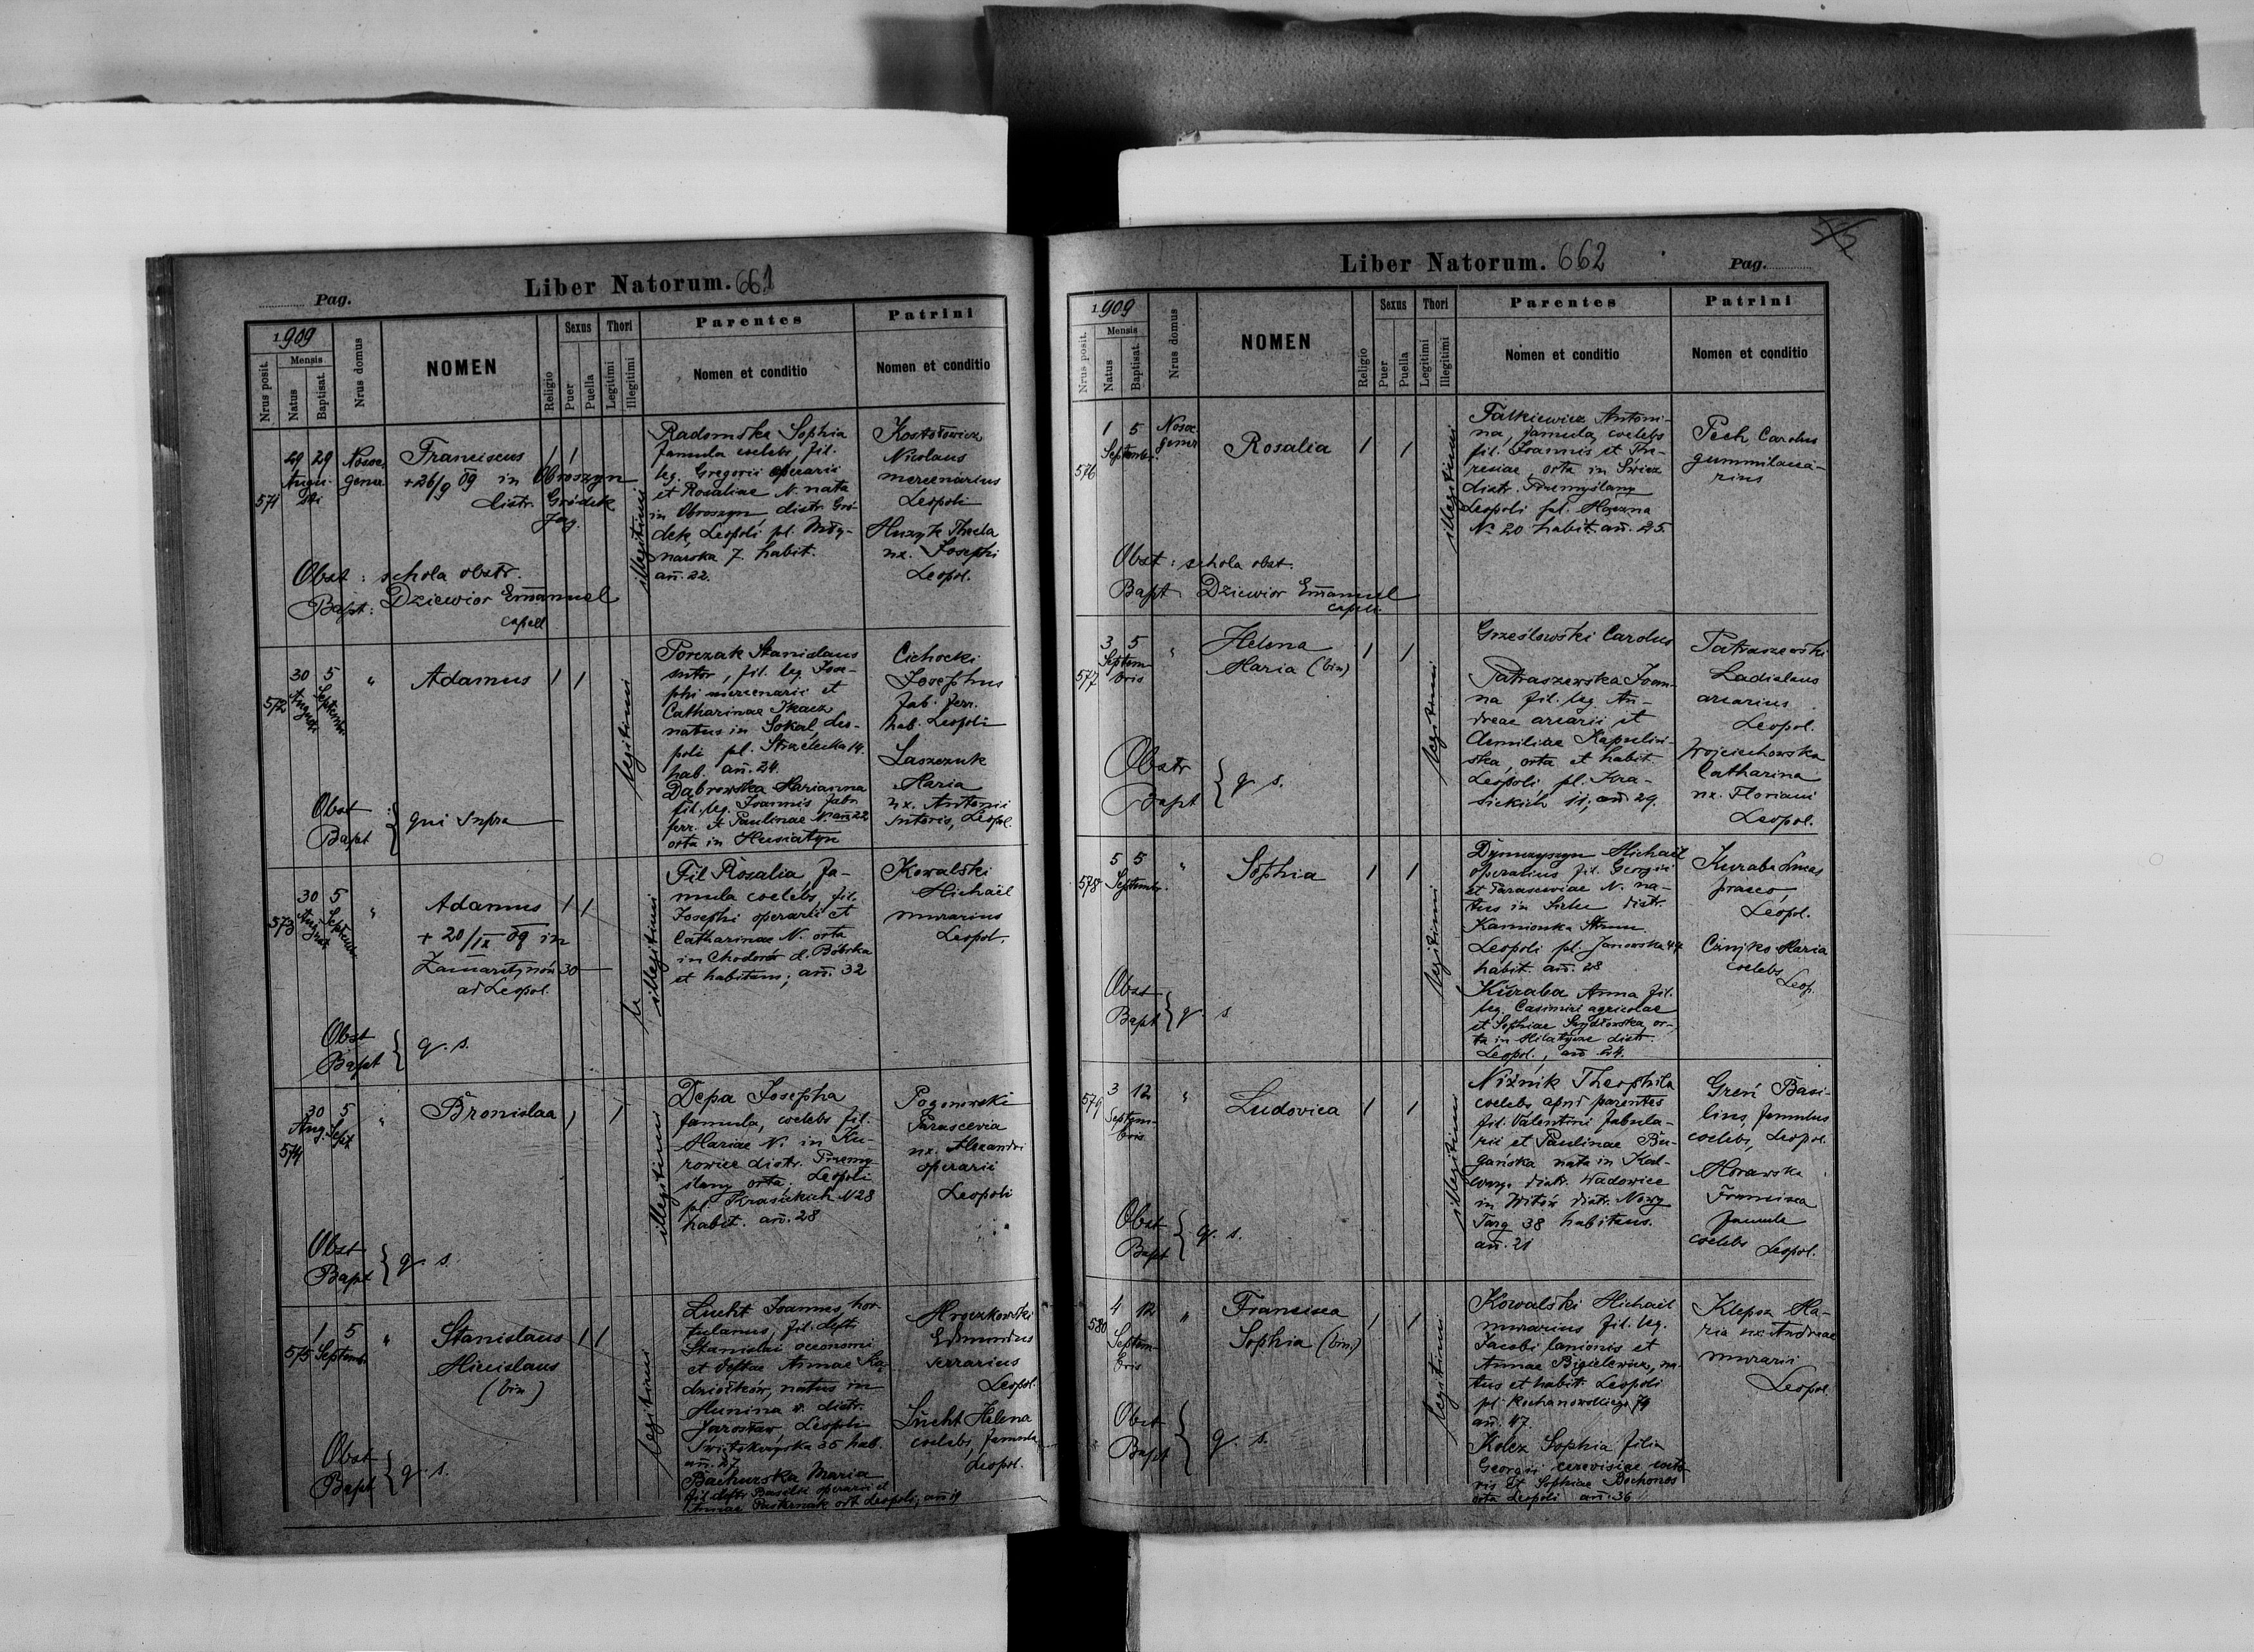 Pag.
Liber Natorum. 661
1909
Nrus posit.
Mensis
Natus
Baptisat.
Nrus domus
NOMEN
Religio
Sexus
Puer
Puella
Thori
Legitimi
Illegitimi
Parentes
Nomen et conditio
Patrini
Nomen et conditio
571
29 29
Augusti
Nosoc.
gener.
Franciscus 1 1
+ 26/9 09 in Obroszyn
distr. Gródek
Jag.
illegitimi
Radomska Sophia
famula coelebs, fil.
leg. Gregorii operarii
et Rosaliae N. nata
in Obroszyn, distr. Gró-
dek, Leopoli pl. Mły-
narska 7 habit.
añ. 22.
Nicolaus
mercenarius
Leopoli
Huzyk Thecla
ux. Josephi
Leopol.
Obst : schola obstr.
Bapt : Dziewior Emanuel
capell
572
30 5
Augusti Septembr.
"
Adamus 1 1
legitimi
Porczak Stanislaus
sutor, fil. leg. Jose-
phi mercenarii et
Catharinae Tkacz
natus in Sokal, Leo-
poli pl. Strzelecka 14.
hab. añ. 24.
Dąbrowska Marianna
fil. leg. Joannis fabr.
ferr. et Paulinae N. añ 22
orta in Husiatyn
Cichocki
Josephus
fab. ferr.
hab. Leopoli
Laszczuk
Maria
ux. Antonii
sutoris, Leopol.
Obst
Bapt } qui supra
573
30 5
August Septembr
"
Adamus 1 1
+ 20/IX 09 in
Zamarstynów 30
ad Leopol.
illegitimi
Fil Rosalia fa-
mula coelebs, fil.
Josephi operarii et
Catharinae N. orta
in Chodorów d. Bóbrka
et habitans; añ. 32
Kowalski
Michaël
murarius
Leopol.
Obst
Bapt } q. s.
574
30 5
Aug. Sept
"
Bronislaa 1 1
illegitimi
Depa Josepha
famula, coelebs fil.
Mariae N. in Ku-
rowice distr. Przemy-
ślany orta, Leopoli
pl. Krasickich N 28
habit. añ. 28
Pogonowski
Parascevia
ux. Alexandri
operarii
Leopoli
Obst
Bapt } q. s.
575
1 5
Septemb.
"
Stanislaus 1 1
Miecislaus
(bin)
legitimi
Lucht Joannes, hor-
tulanus, fil. defti
Stanislai oeconomi
et deftae Annae
natus in
Munina v. distr.
Jarosław, Leopoli
35 hab.
añ. 27
Bachurska Maria
fil. defti Basilii operarii et
Annae Pasternak ort Leopoli, añ 19
Mroczkowski
Edmundus
serrarius
Leopol.
Lucht Helena
coelebs, famula
Leopol.
Obst
Bapt } q. s.
Liber Natorum. 662
Pag.
1909
Nrus posit.
Mensis
Natus
Baptisat.
Nrus domus
NOMEN
Religio
Sexus
Puer
Puella
Thori
Legitimi
Illegitimi
Parentes
Nomen et conditio
Patrini
Nomen et conditio
576
1 5
Septembr.
Nosoc.
gener
Rosalia 1 1
illegitimi
Falkiewicz Antoni-
na, famula, coelebs
fil. Joannis et The-
resiae, orta in Świrz
distr. Przemyślany
Leopoli pl.
No 20 habit. añ. 25.
Pech Carolus
Obst : schola obst.
Bapt Dziewior Emanuel
capell.
577
3 5
Septem-
bris
"
Helena 1 1
Maria (bin)
legitimi
Grześlowski Carolus
Patraszewska Joan-
na fil. leg. An-
dreae arcarii et
Aemiliae Kapuściń-
ska, orta et habit
Leopoli pl. Kra-
sickich 11, añ 29.
Patraszewski
Ladislaus
arcarius
Leopol.
Wojciechowska
Catharina
ux. Floriani
Leopol.
Obstr
Bapt } q. s.
578
5 5
Septembr.
"
Sophia 1 1
legitimi
Michaël
operarius fil. Georgii
et Parasceviae N. na-
tus in distr.
Kamionka Strum.
Leopoli pl. Janowska 44
habit. añ. 28
Kuraba Anna fil.
leg. Casimiri agricolae
et Sophiae Szydłowska, or-
ta in Hilatycze distr.
Leopol., añ 24.
Kuraba Lucas
praeco
Leopol.
Maria
coelebs
Leop.
Obst
Bapt } q. s.
579
3 12
Septem-
bris
"
Ludovica 1 1
illegitimi
Niżnik Theophila
coelebs apud parentes
fil. Valentini fabula-
rii et Paulinae Bu-
gańska nata in Kal-
warya distr. Wadowice
in Witów distr. Nowy
Targ 38 habitans.
añ. 21
Greń Basi-
lius, famulus
coelebs, Leopol.
Morawska
Francisca
famula
coelebs Leopol.
Obst
Bapt } q. s.
580
4 12
Septem-
bris
"
Francisca 1 1
Sophia (bin)
legitimi
Kowalski Michaël
murarius fil. leg.
Jacobi lanionis et
Annae Bigielewicz, na-
tus et habit. Leopoli
pl. Kochanowskiego 74
añ. 47.
Kolcz Sophia filia
Georgii cerevisiae cocto-
ris et Sophiae Bochonos
orta Leopoli añ. 36
Klepsz Ma-
ria ux. Andreae
murarii
Leopol
Obst
Bapt } q. s.